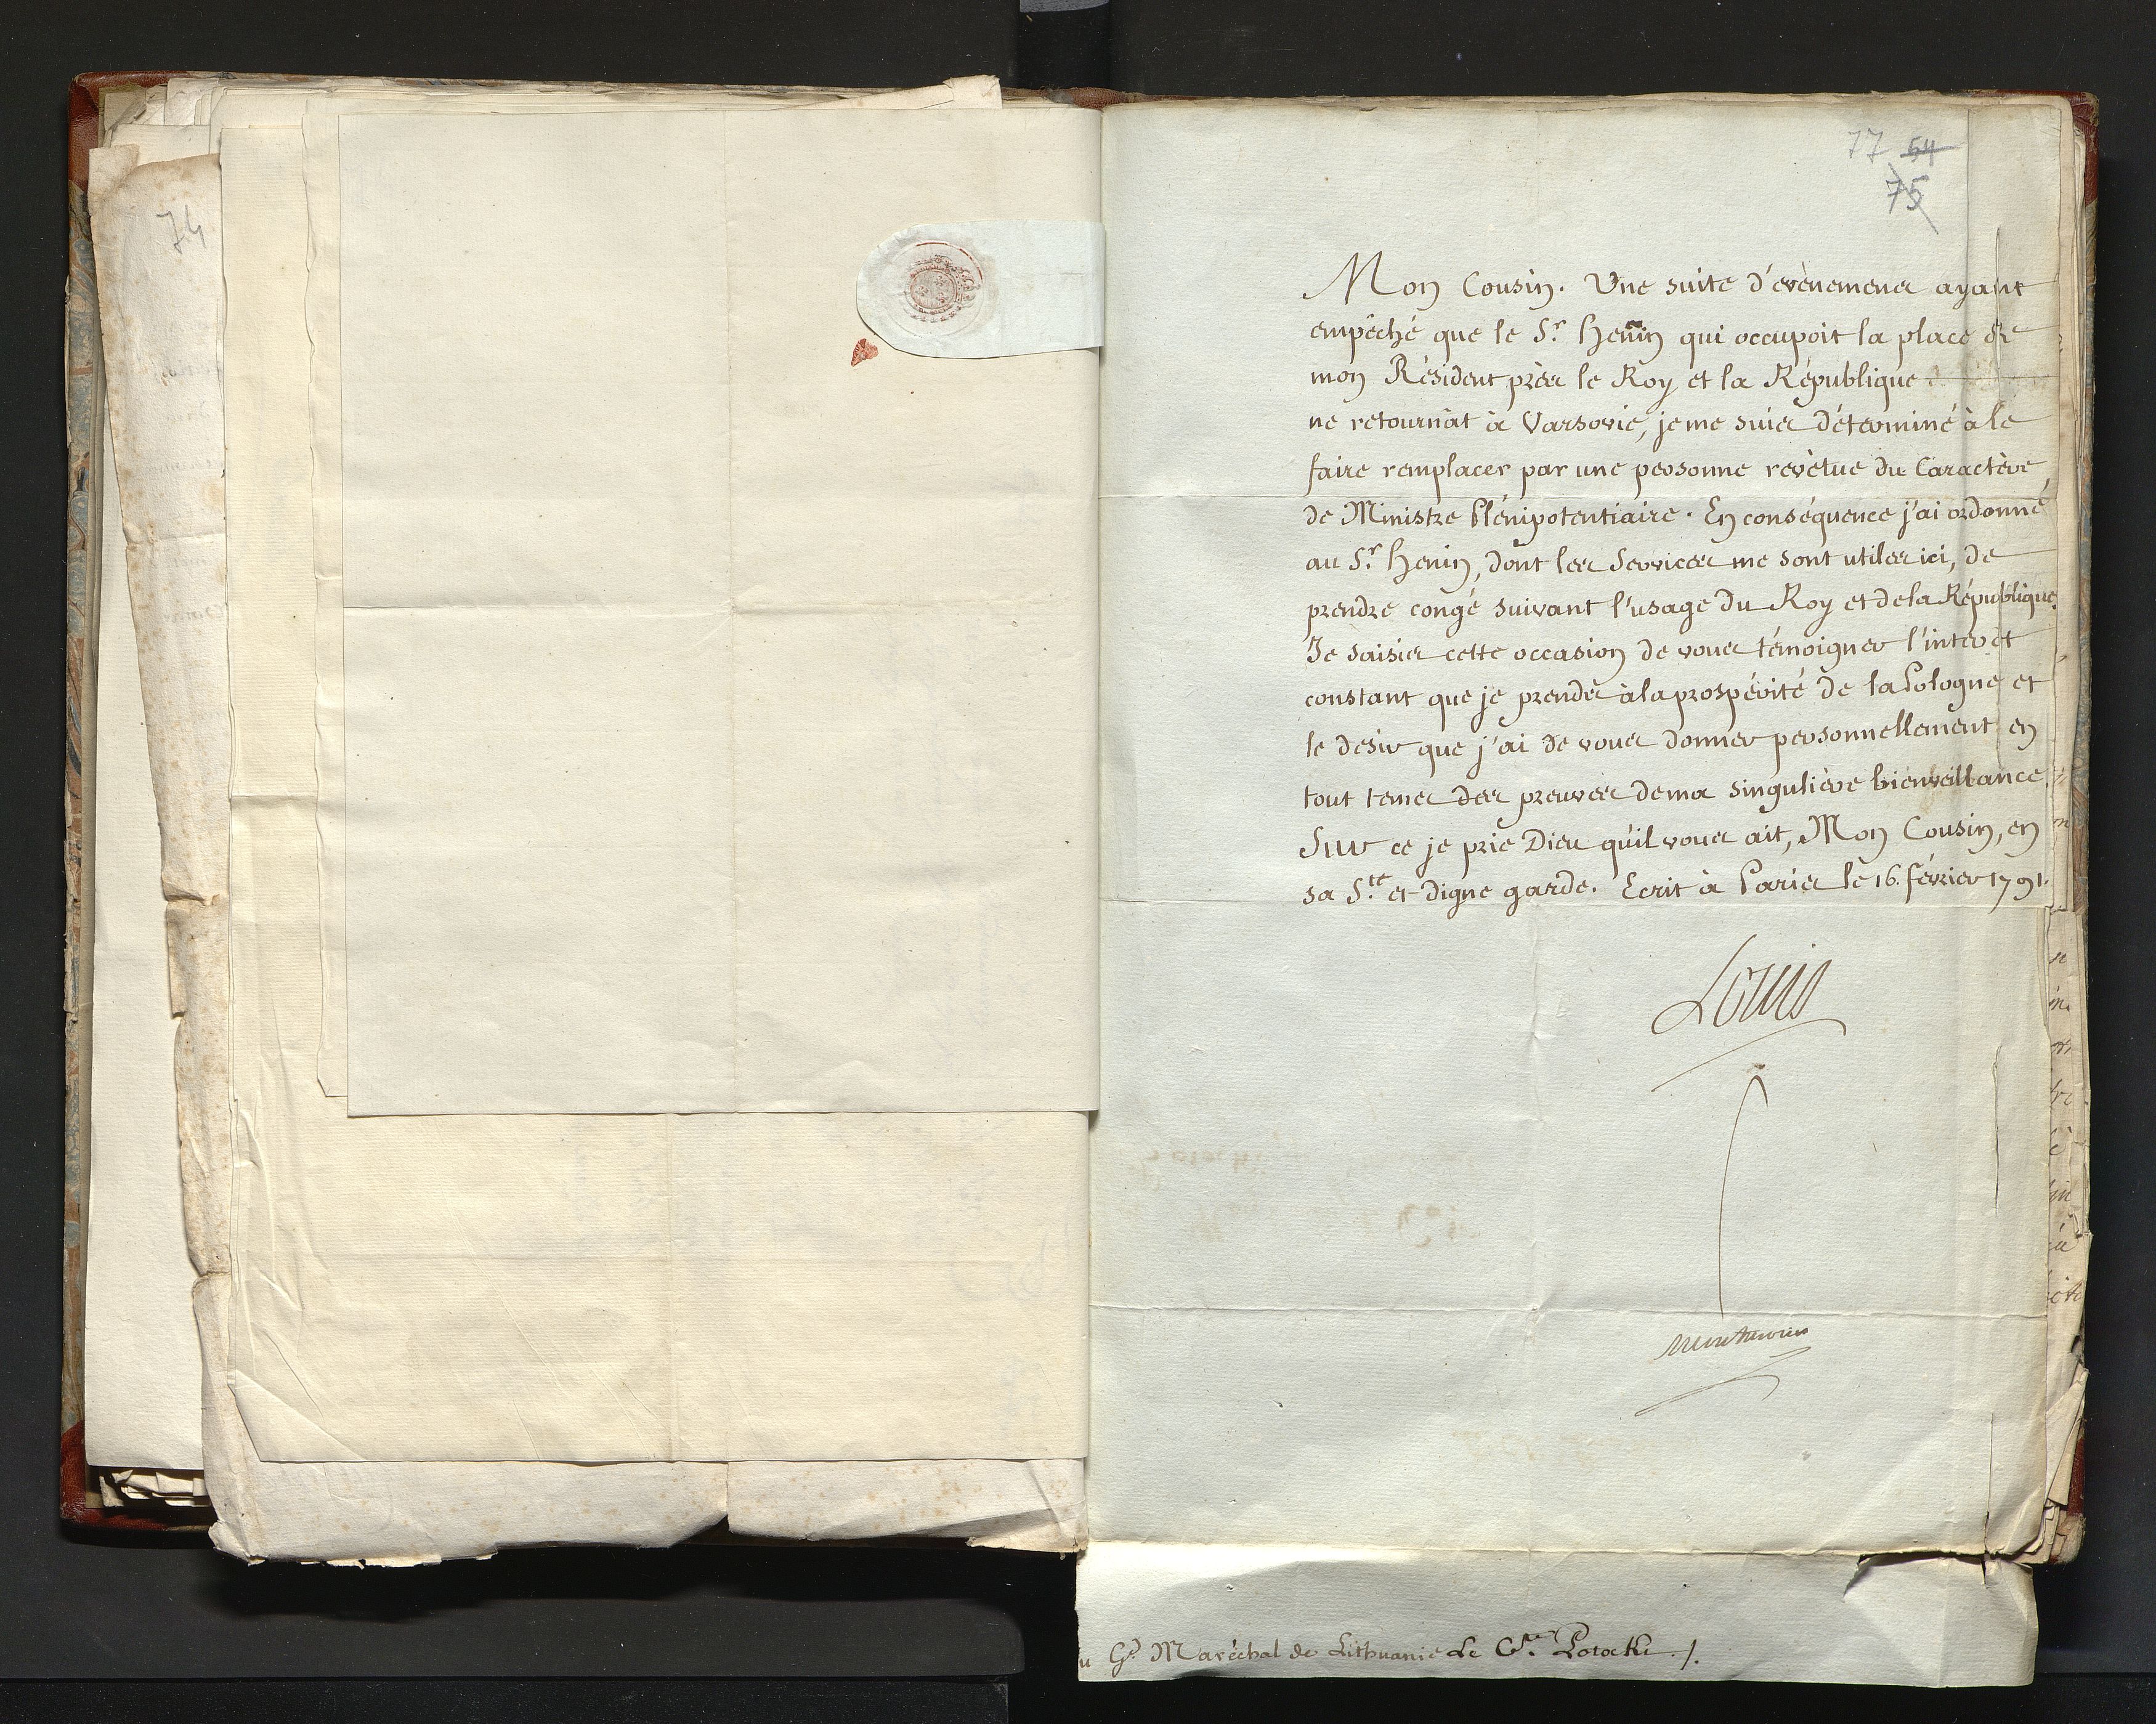 74
77 54
75
Mon Cousin. Une suite d'evènemens ayant
empêché que le Sr. Henin qui occupoit la place de
mon Résident près le Roy et la République
ne retournât à Varsovie, je me suis déterminé à le
faire remplacer par une personne revêtue du Caractère
de Ministre Plénipotentiaire. En conséquence j'ai ordonné
au Sr. Henin, dont les Services me sont utiles ici, de
prendre congé suivant l'usage du Roy et de la République.
Je saisis cette occasion de vous témoigner l'interêt
constant que je prends à la prospérité de la Pologne et
le desir que j'ai de vous donner personnellement en
tout tems des preuves de ma singulière bienveillance.
Sur ce je prie Dieu qu'il vous ait, Mon Cousin, en
sa Ste. et digne garde. Ecrit à Paris le 16. février 1791.
Louis
Montmorin
u Gd. Maréchal de Lithuanie Le Cte. Potocki ./.